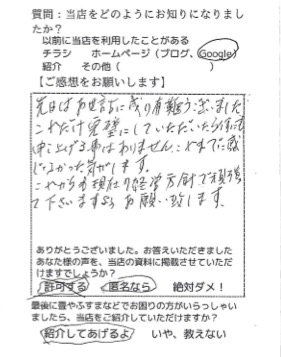 質問：当店をどのようにお知りになりまし
たか？
以前に当店を利用したことがある
チラシ　ホームページ（ブログ、Google）
紹介　その他（　　　　　　　　）
【ご感想をお願いします】
先日はお世話に成り有難う御座いました
これだけ完璧にしていただいたら何にも
申し上げる事はありません。今までに感
じなかった気がします。
これからも現在の経営方針で頑張っ
て下さいますようお願い致します。
ありがとうございました。お答えいただきました
あなた様の声を、当店の資料に掲載させていただ
けますでしょうか？
許可する　匿名なら　絶対ダメ！
最後に畳やふすまなどでお困りの方がいらっしゃい
ましたら、当店をご紹介していただけますか？
紹介してあげるよ　いや、教えない